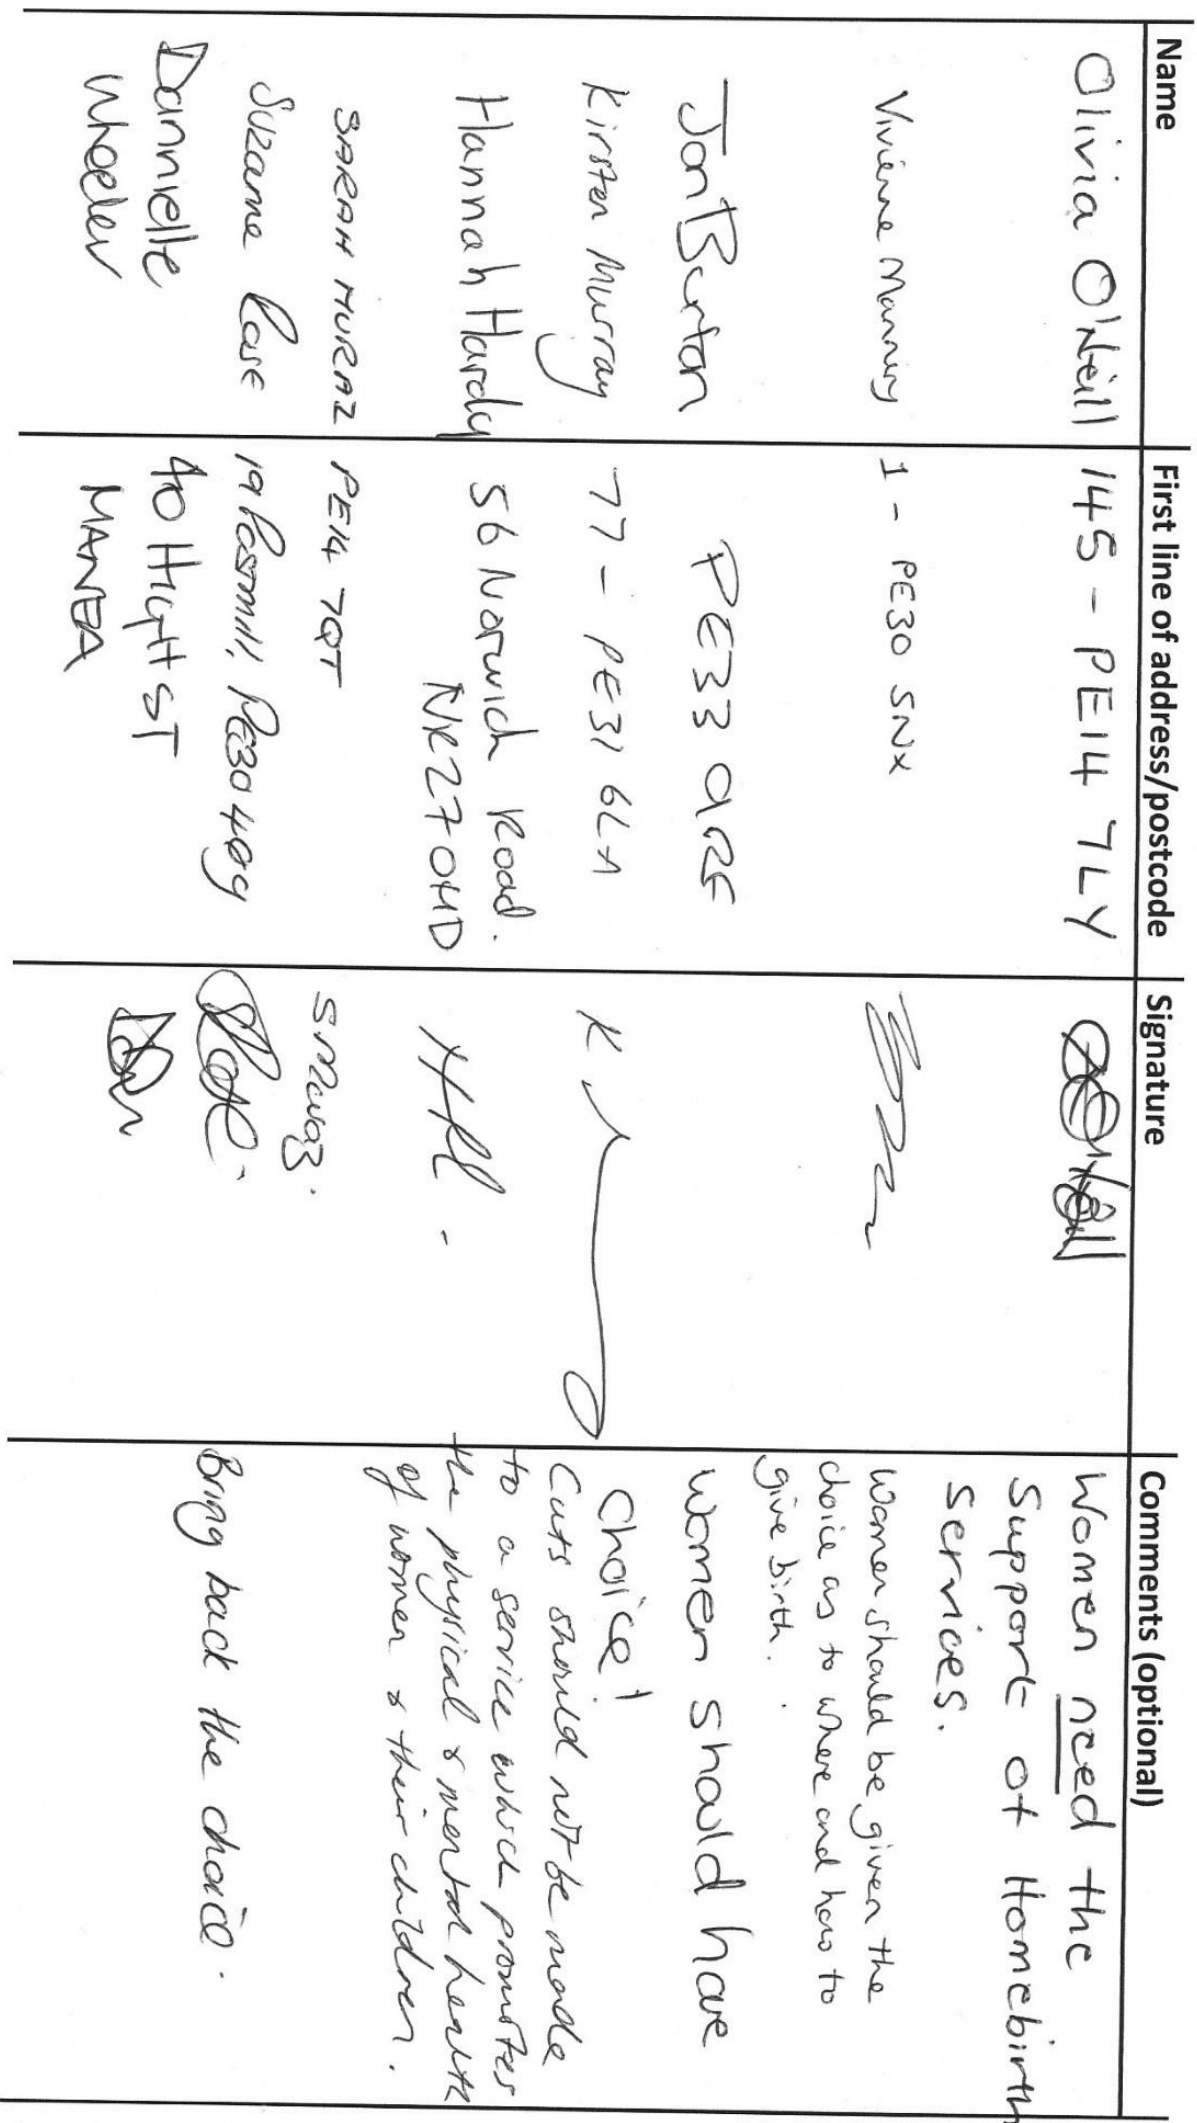 Name First line of address/postcode Signature Comments (optional)
Olivia O'Neill 145 - PE14 7LY Women need the
Support of Homebirth
Services.
Vivienne Manning 1 - PE30 5NX Women should be given the
choice as to where and how to
give birth.
Jon Burton PE33 0RE Women should have
Choice!
Kirsten Murray 77 - PE31 6LA K Cuts should not be made
Hannah Hardy 56 Norwich Road. to a service which promotes
NR27 0HD the physical & mental health
of women & their children.
SARAH MURAZ PE14 7QT SMuraz.
Suzanne Rose 19 PE30 Rose Bring back the choice.
Dannielle 40 HIGH ST
Wheeler MANEA